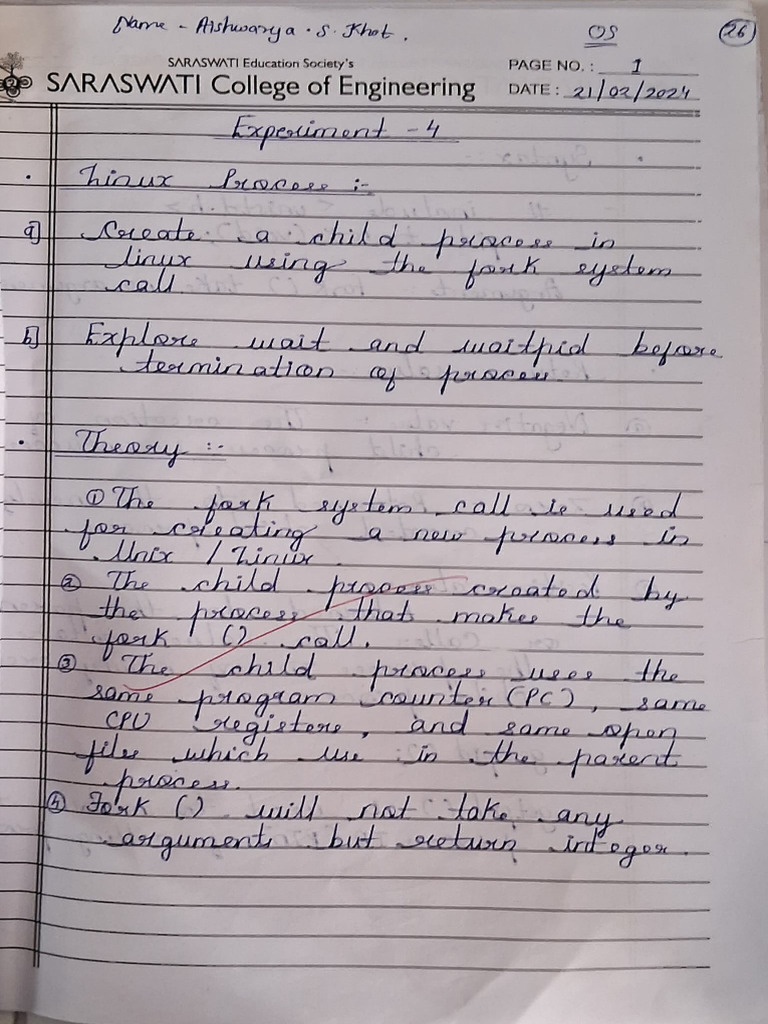 Name - Aishwarya . S. Khot .
OS
26
SARASWATI Education Society's
SARASWATI College of Engineering
PAGE NO. : 1
DATE : 21/02/2024
Experiment - 4
• Linux Process :-
a] Create a child process in
linux using the fork system
call
b] Explore wait and waitpid before
termination of process.
• Theory :-
① The fork system call is used
for creating a new process in
Unix / Linux .
② The child process created by
the process that makes the
fork () call.
③ The child process uses the
same program counter (PC), same
CPU registers, and same open
files which use in the parent
process.
④ Fork () will not take any
arguments but return integer.